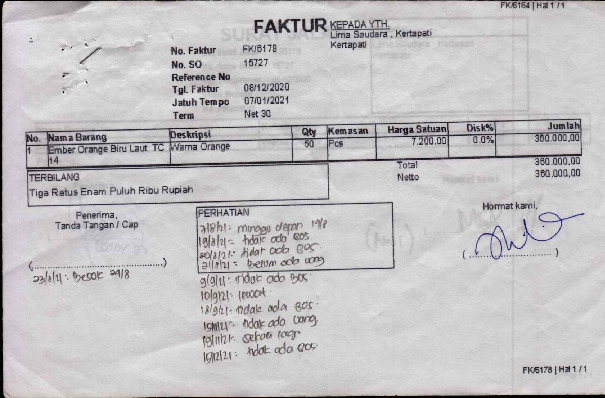 FK/6164 | Hal 1 / 1
FAKTUR
KEPADA YTH.
Lima Saudara , Kertapati
Kertapati
No. Faktur FK/6178
No. SO 15727
Reference No
Tgl. Faktur 08/12/2020
Jatuh Tempo 07/01/2021
Term Net 30
No. Nama Barang Deskripsi Qty Kemasan Harga Satuan Disk% Jumlah
1 Ember Orange Biru Laut TC 14 Warna Orange 50 Pcs 7.200,00 0.0% 360.000,00
Total 360.000,00
Netto 360.000,00
TERBILANG
Tiga Ratus Enam Puluh Ribu Rupiah
Penerima,
Tanda Tangan / Cap
Hormat kami,
PERHATIAN
minggu depan 19/8
19/8/21: tidak ada BOS
tidak ada BOS
belum ada uang
23/8/21: Besok 24/8
9/9/21: tidak ada BOS.
10/9/21:
18/9/21: tidak ada BOS.
tidak ada uang
tidak ada BOS.
FK/6178 | Hal 1 / 1